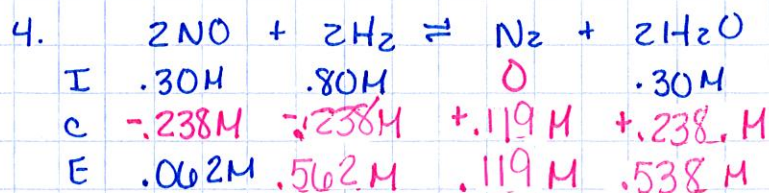 4. 2NO + 2H₂ ⇌ N₂ + 2H₂O
I .30M .80M 0 .30M
C -.238M -.238M +.119M +.238.M
E .062M .562M .119M .538M